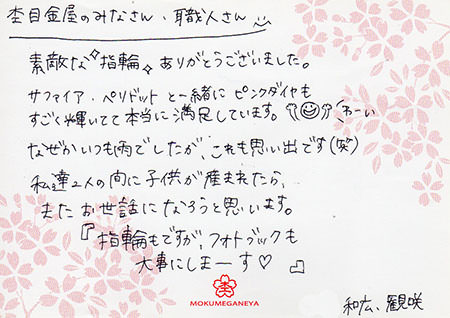 杢目金屋のみなさん、職人さん
素敵な指輪ありがとうございました。
サファイア・ペリドットと一緒にピンクダイヤも
すごく輝いてて本当に満足しています。わーい
なぜかいつも雨でしたが、これも思い出です(笑)
私達2人の間に子供が産まれたら、
またお世話になろうと思います。
『指輪もですが、フォトブックも
大事にしまーす♡』
杢
MOKUMEGANEYA
和広、観咲